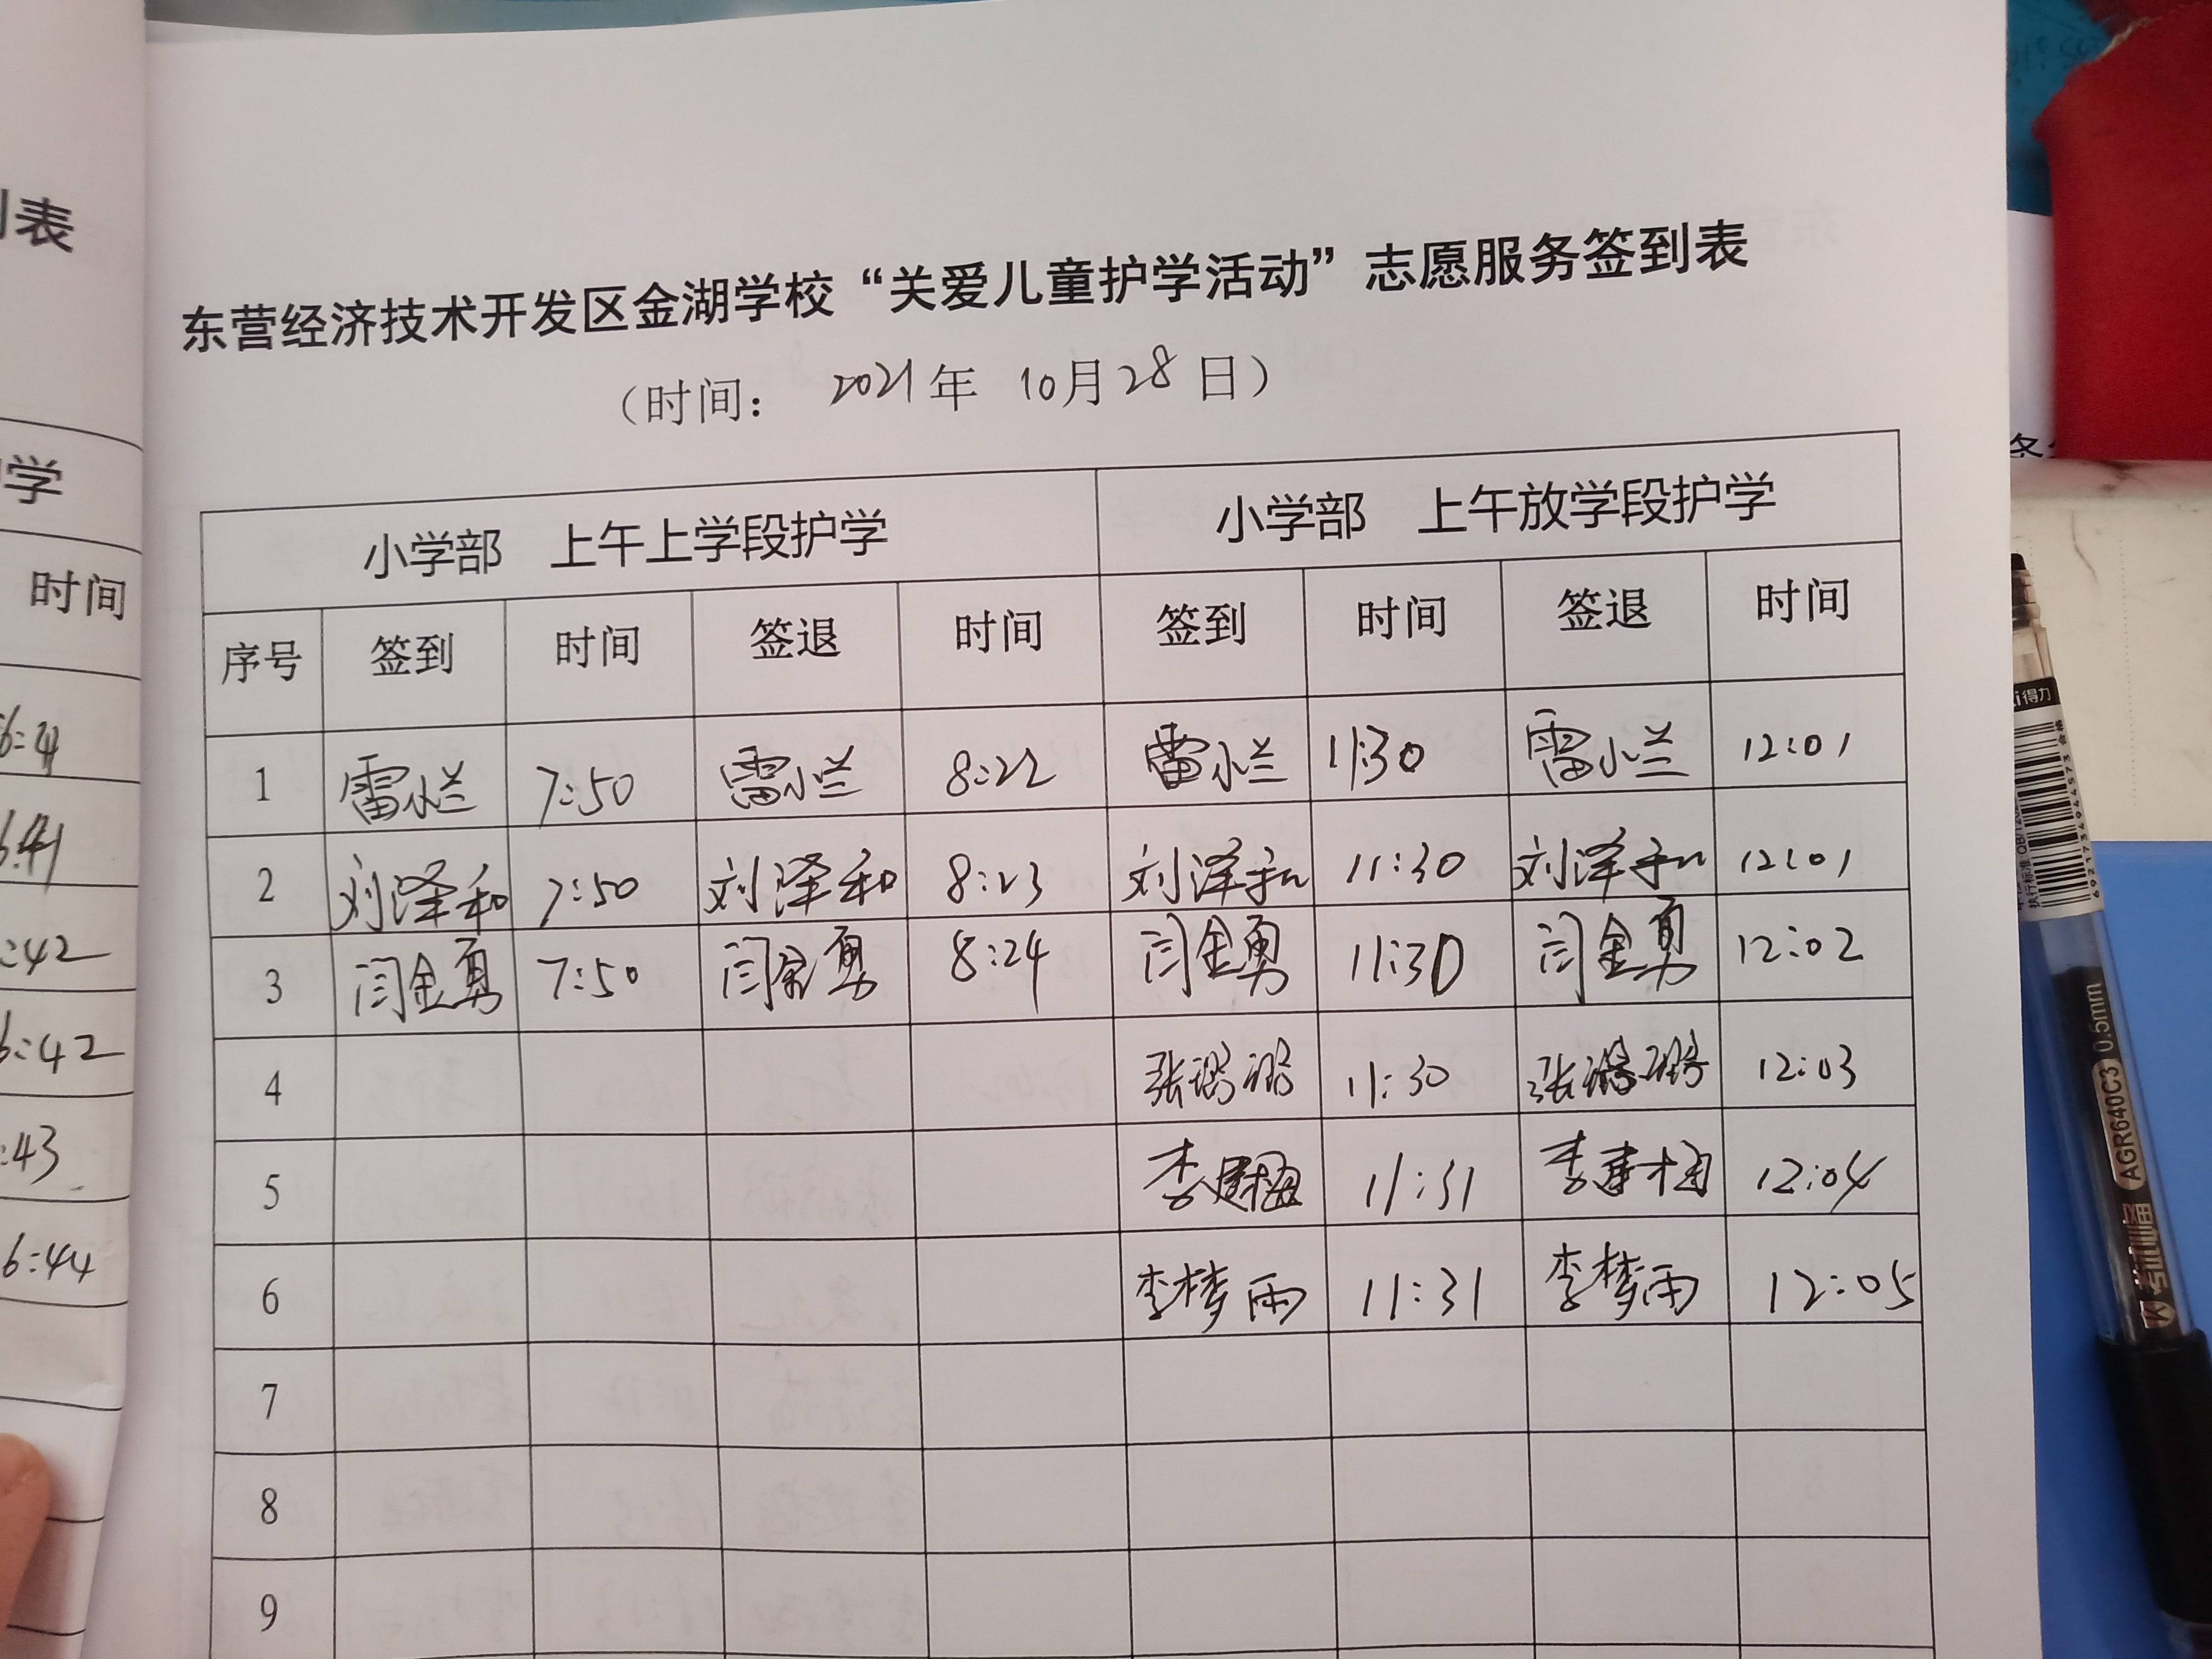 表
学
时间
6:41
6:41
:42
6:42
:43
6:44
东营经济技术开发区金湖学校“关爱儿童护学活动”志愿服务签到表
（时间： 2021年 10月28日）
小学部 上午上学段护学 小学部 上午放学段护学
序号 签到 时间 签退 时间 签到 时间 签退 时间
1 雷小兰 7:50 雷小兰 8:22 雷小兰 11:30 雷小兰 12:01
2 刘泽和 7:50 刘泽和 8:23 刘泽和 11:30 刘泽和 12:01
3 闫金勇 7:50 闫金勇 8:24 闫金勇 11:30 闫金勇 12:02
4 张 11:30 张 12:03
5 李 11:31 李 12:04
6 李梦雨 11:31 李梦雨 12:05
7
8
9
得力
6921734944573
AGR640C3 0.5mm